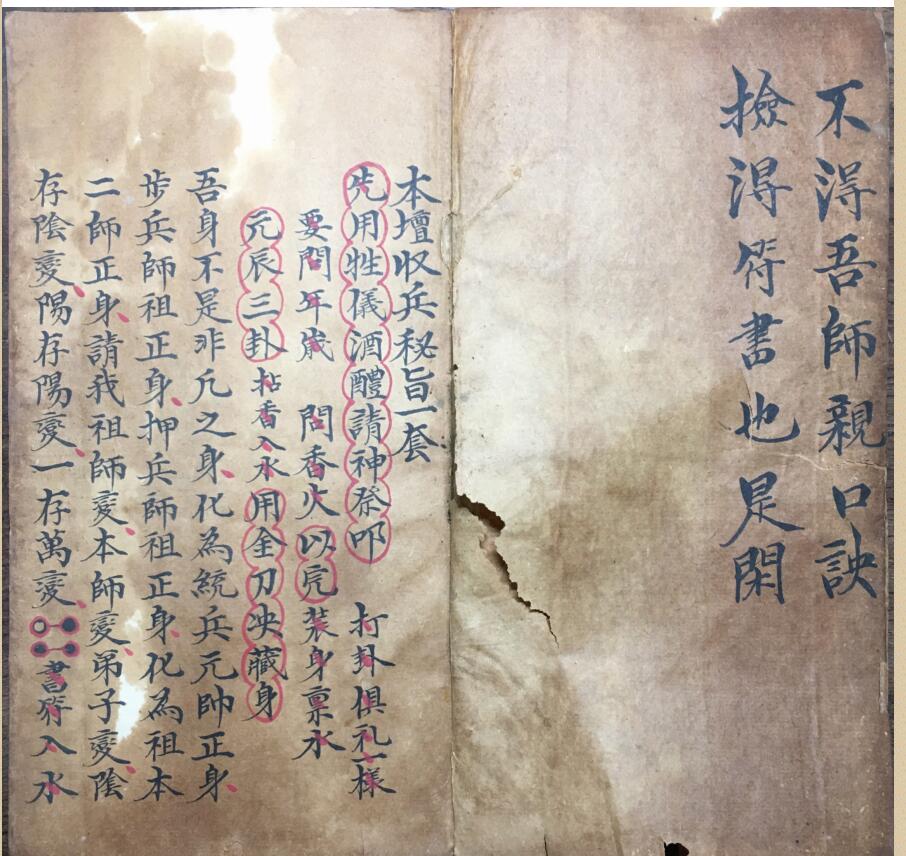 不淂吾師親口訣
撿淂符書也是閑
本壇収兵秘旨一套
先用牲儀酒醴請神祭叩 打卦俱礼一様
要問年歲 問香火以完装身禀水
元辰三卦拈香入水用金刀決藏身
吾身不是非凢之身化為統兵元帥正身
步兵師祖正身押兵師祖正身化為祖本
二師正身請我祖師変本師変弟子変陰
存陰変陽存陽変一存萬変書符入水